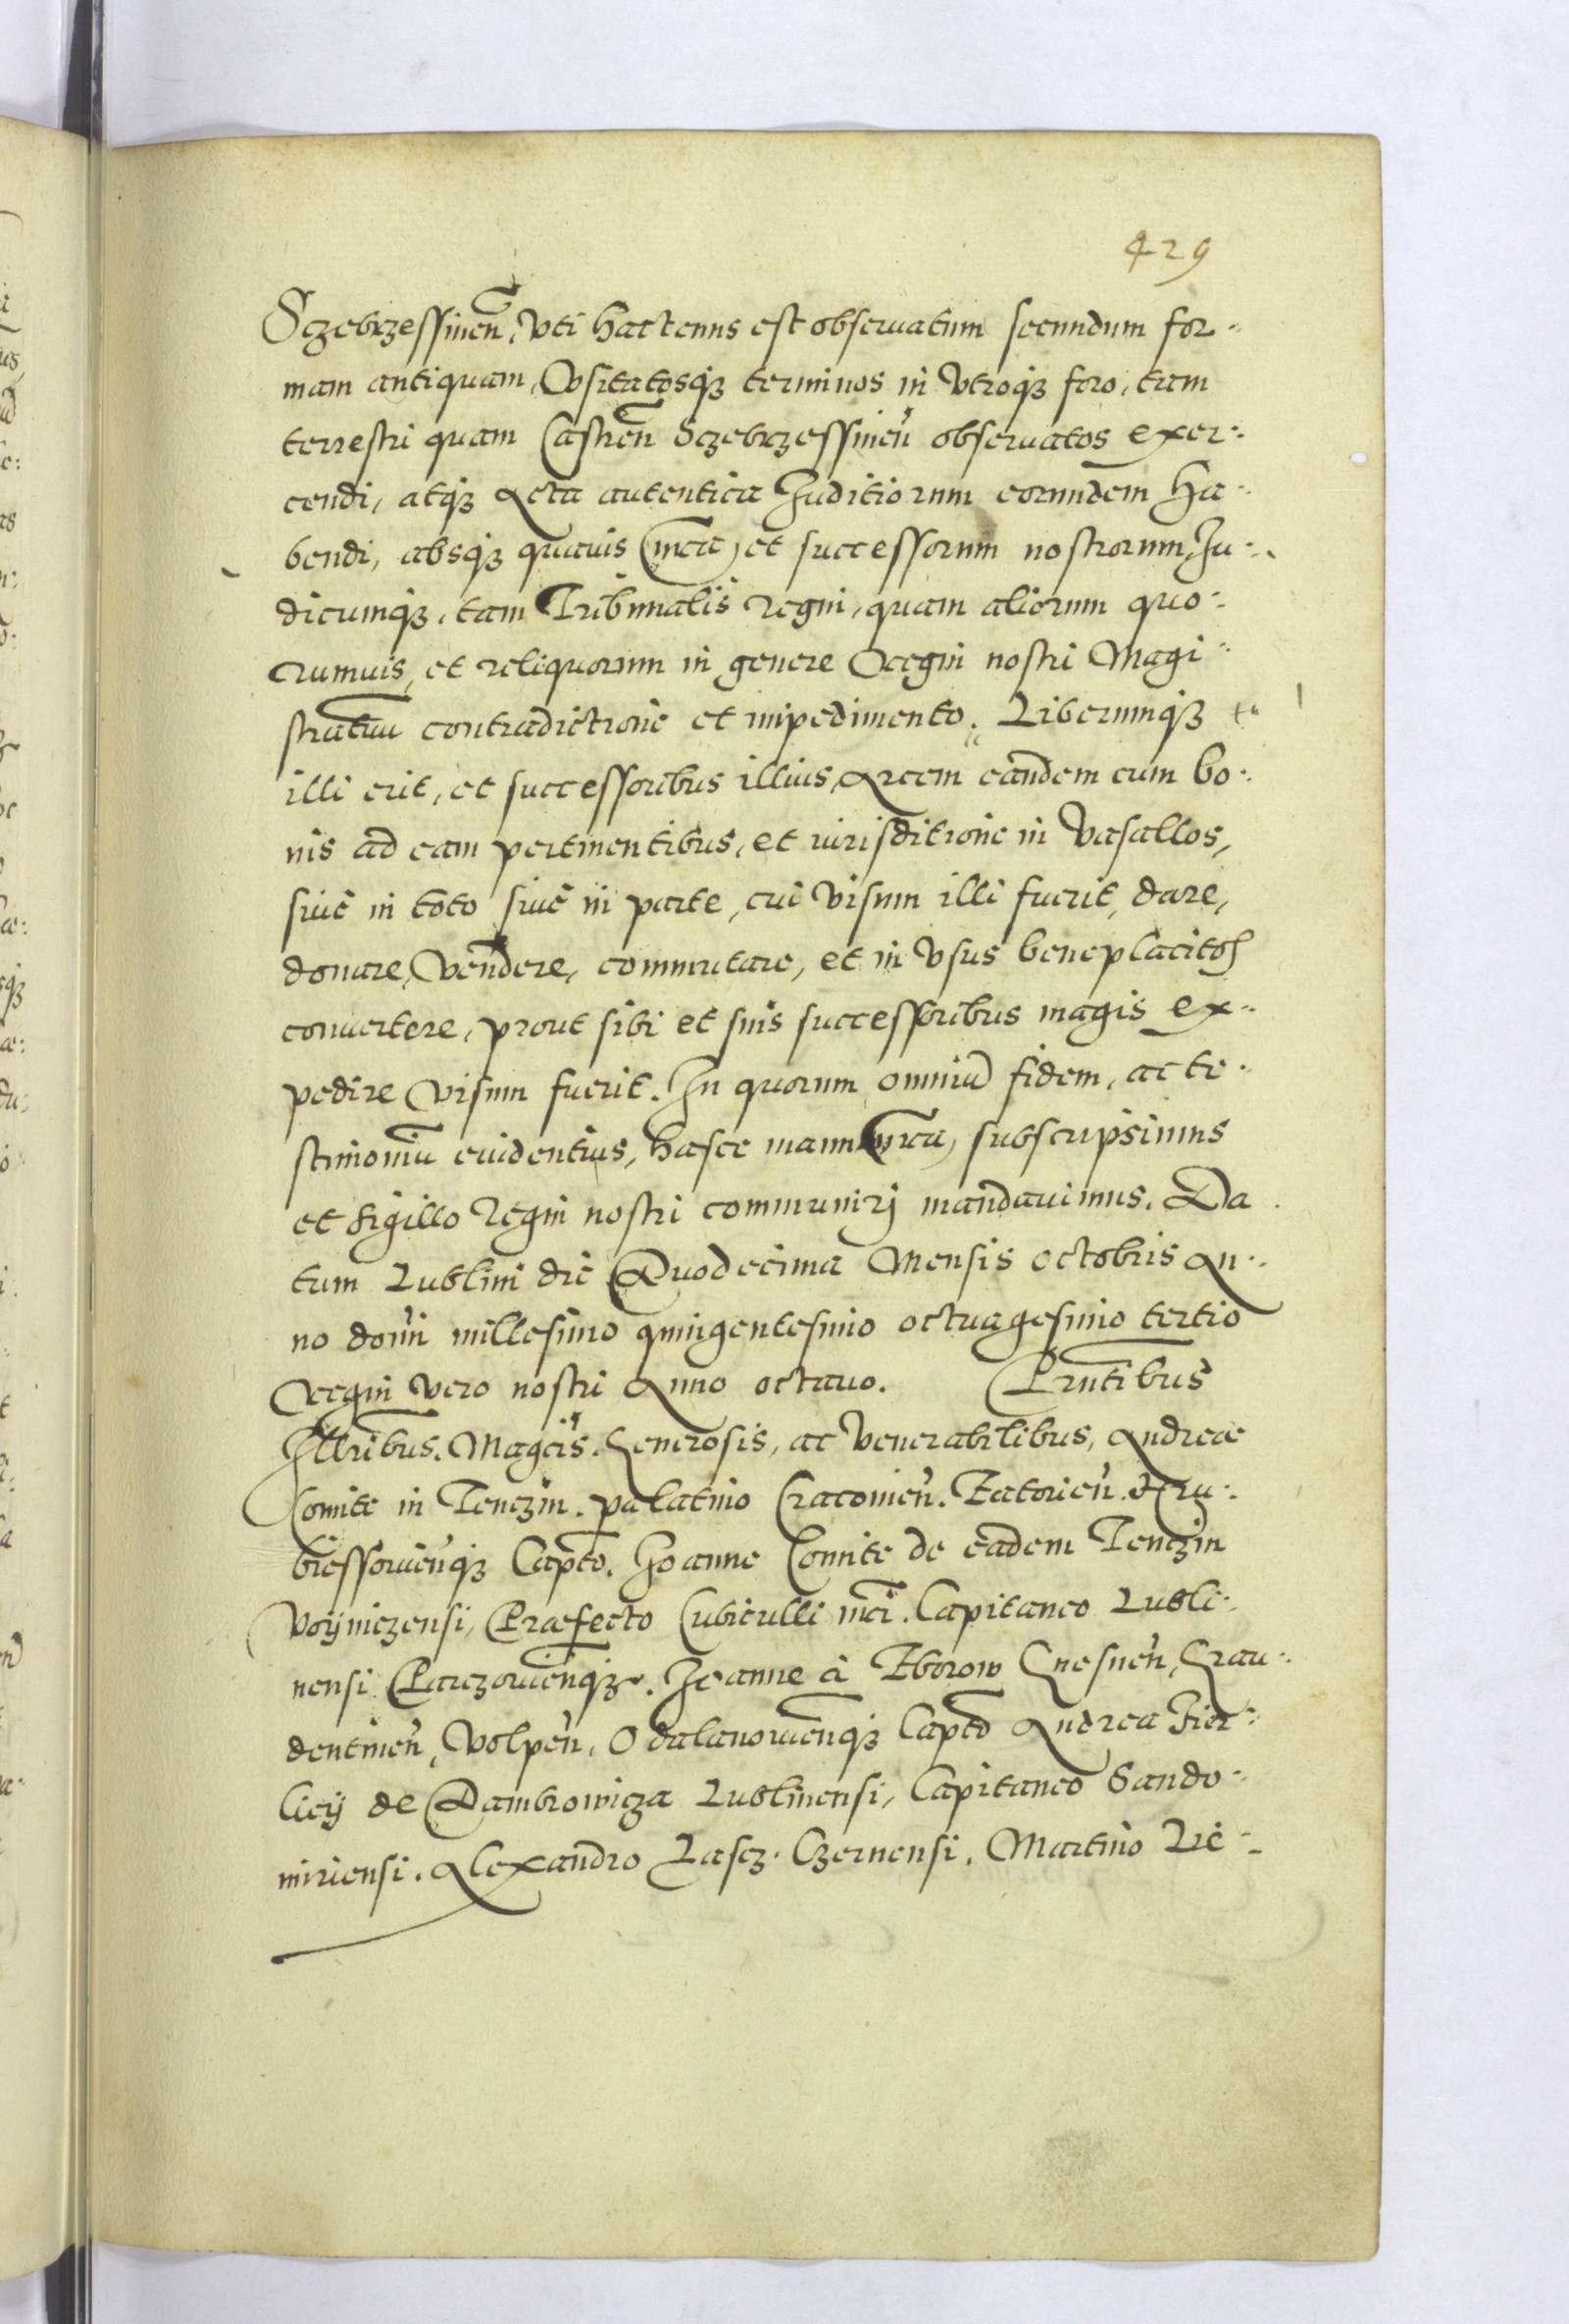 429
Sczebrzessinen̄, vti hactenus est obseruatum secundum for-
mam antiquam, vsitatosq₃ terminos in vtroq₃ foro, tam
terrestri quam Castren̄ Sczebrzessinen̄ obseruatos exer-
cendi, atq₃ Acta autentica Juditiorum eorundem ha-
bendi, absq₃ quauis n̄ra, et successorum nostrorum, Ju-
dicumq₃, tam Tribunalis regni, quam aliorum quo-
rumuis, et reliquorum in genere Regni nostri Magi-
stratuū contradictione et impedimento. Liberumq₃
illi erit, et successoribus illius, Arcem eandem cum bo-
nis ad eam pertinentibus, et iurisditione in Vasallos,
siue in toto siue in parte, cui visum illi fuerit, dare,
donare, vendere, commutare, et in vsus beneplacitos
conuertere, prout sibi et suis successoribus magis ex-
pedire visum fuerit. In quorum omniū fidem, ac te-
stimoniū euidentius, hasce manu n̄ra, subscripsimus
et sigillo regni nostri communirj mandauimus. Da
tum Lublini die Duodecima Mensis octobris An-
no don̄i millesimo quingentesimo octuagesimo tertio
Regni vero nostri Anno octauo. Prn̄tibus
Illribus. Magcis. Generosis, ac Venerabilibus, Andrea
Comite in Tenczin. palatino Cracouien̄. Zatorien̄. Hru-
biessouien̄q₃ Capt̄o. Joanne Comite de eadem Tenczin
Voijniczensi, Praefecto Cubiculli n̄ri. Capitaneo Lubli-
nensi Parczouien̄q₃. Joanne à Zborow Gnesnen̄, Grau-
dentinen̄, Volpen̄, Odalanouien̄q₃ Capt̄o Andrea Fir-
licij de Dambrowicza Lublinensi, Capitaneo Sando-
miriensi. Alexandro Lascz. Czernensi. Martino Le-